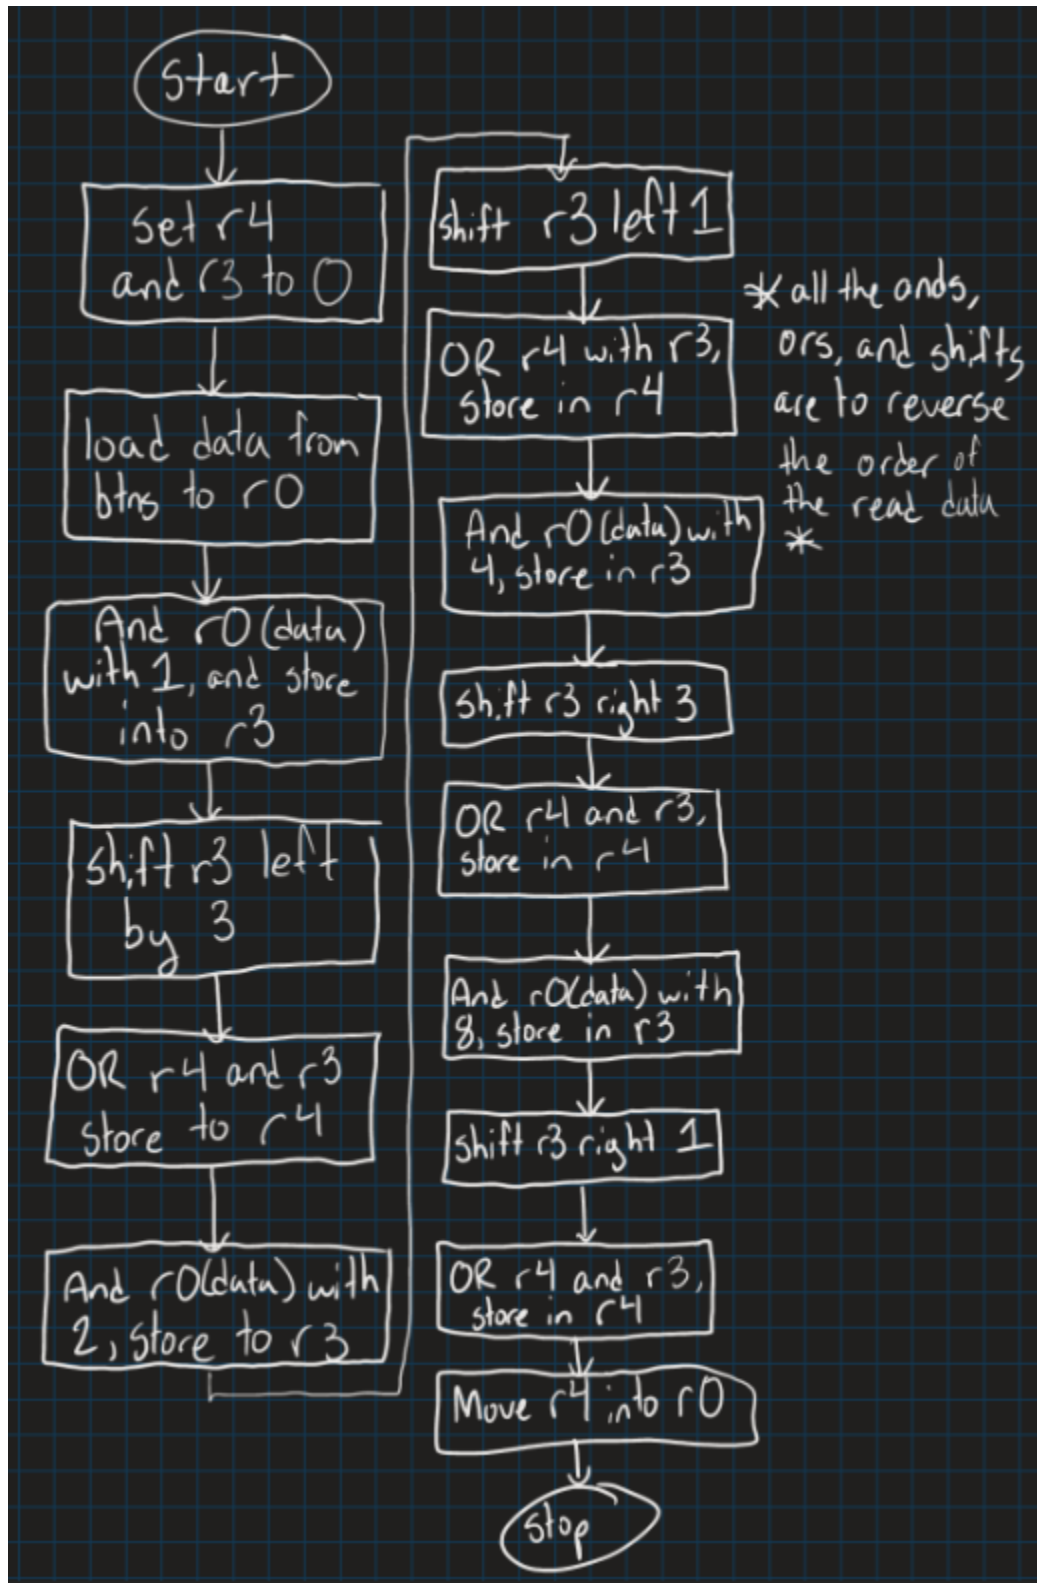 Start
set r4
and r3 to 0
load data from
btns to r0
And r0(data)
with 1, and store
into r3
shift r3 left
by 3
OR r4 and r3
store to r4
And r0(data) with
2, store to r3
shift r3 left 1
OR r4 with r3,
store in r4
And r0(data) with
4, store in r3
shift r3 right 3
OR r4 and r3,
store in r4
And r0(data) with
8, store in r3
shift r3 right 1
OR r4 and r3,
store in r4
Move r4 into r0
stop
* all the ands,
ors, and shifts
are to reverse
the order of
the read data
*